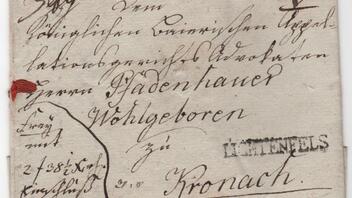 Dem
Königlichen Baierischen Appel-
lationsgerichts Advokaten
Herrn Pfadenhauer
Wohlgeboren
zu
Kronach.
LICHTENFELS
frey
mit
2 f 38½
Einschluß